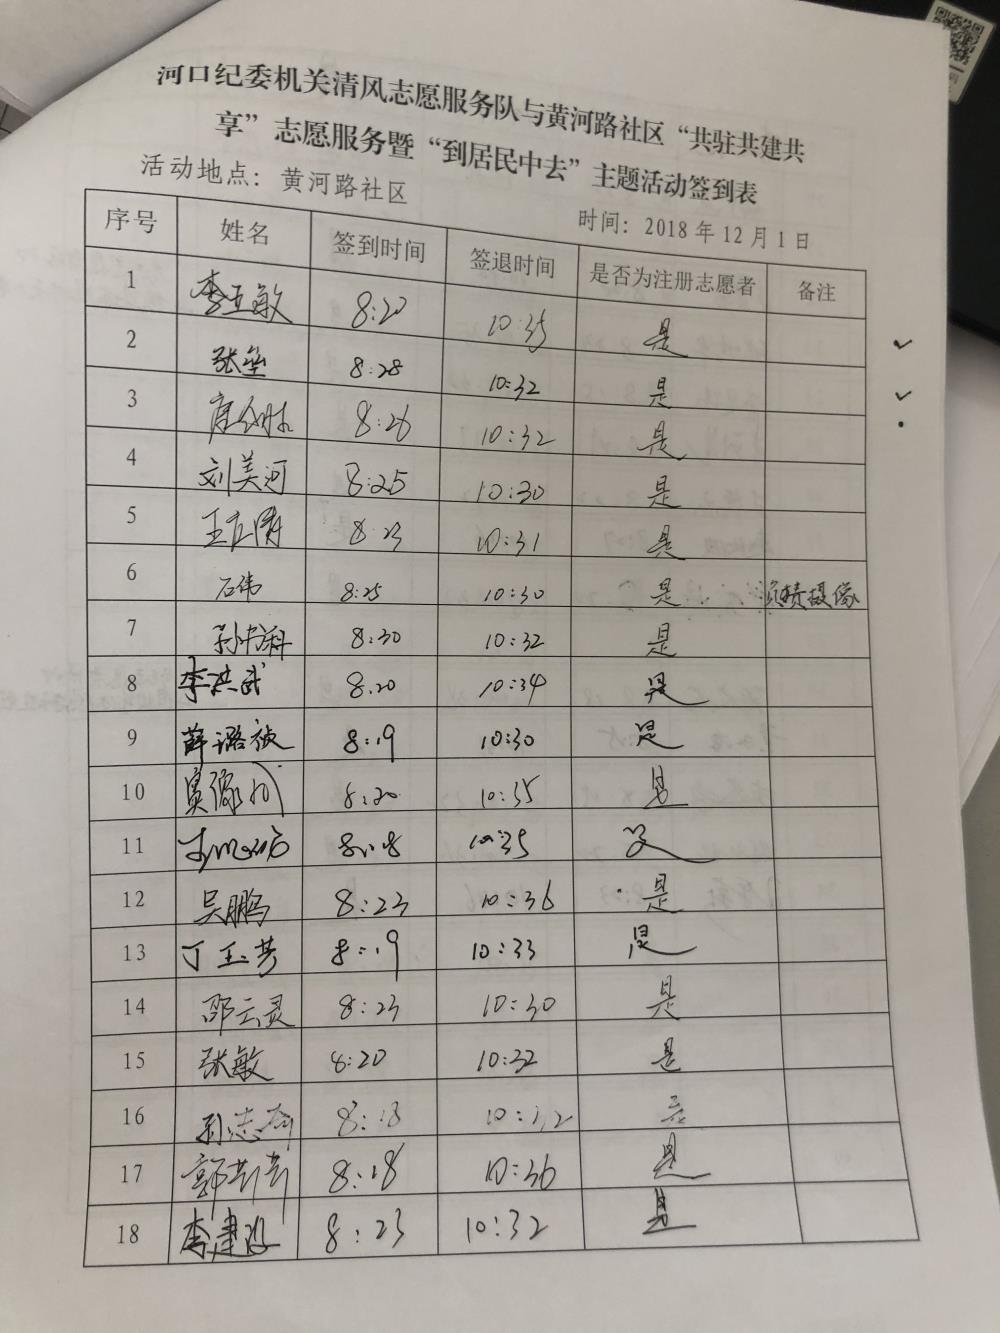 河口纪委机关清风志愿服务队与黄河路社区“共驻共建共
享”志愿服务暨“到居民中去”主题活动签到表
活动地点：黄河路社区
时间：2018年12月1日
序号 姓名 签到时间 签退时间 是否为注册志愿者 备注
1 8:20 10:35 是
2 8:28 10:32 是
3 8:26 10:32 是
4 刘美河 8:25 10:30 是
5 8:23 10:31 是
6 石伟 8:25 10:30 是 负责摄像
7 8:30 10:32 是
8 李洪武 8:20 10:34 是
9 薛潞祯 8:19 10:30 是
10 8:20 10:35 是
11 8:18 10:35 是
12 吴鹏 8:23 10:36 是
13 丁玉芳 8:19 10:33 是
14 邵云灵 8:23 10:30 是
15 张敏 8:20 10:32 是
16 8:18 是
17 郭芸芸 8:18 10:36 是
18 8:23 10:32 是